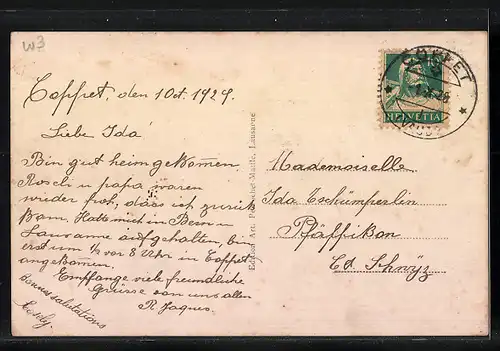 W3
Coppet, den 1 Oct. 1929.
Liebe Ida
Bin gut heimgekommen.
Roseli u papa waren
wider froh, dass ich zurück
kam. Hatte mich in Bern u
Lausanne aufgehalten, bin
erst um ½ vor 8 Uhr in Coppet
angekommen.
Empfange viele freundliche
Grüsse von uns allen
R Jaques.
bonnes salutations
COPPET
HELVETIA
Lausanne
Mademoiselle
Ida Tschümperlin
Pfäffikon
Ct Schwÿz